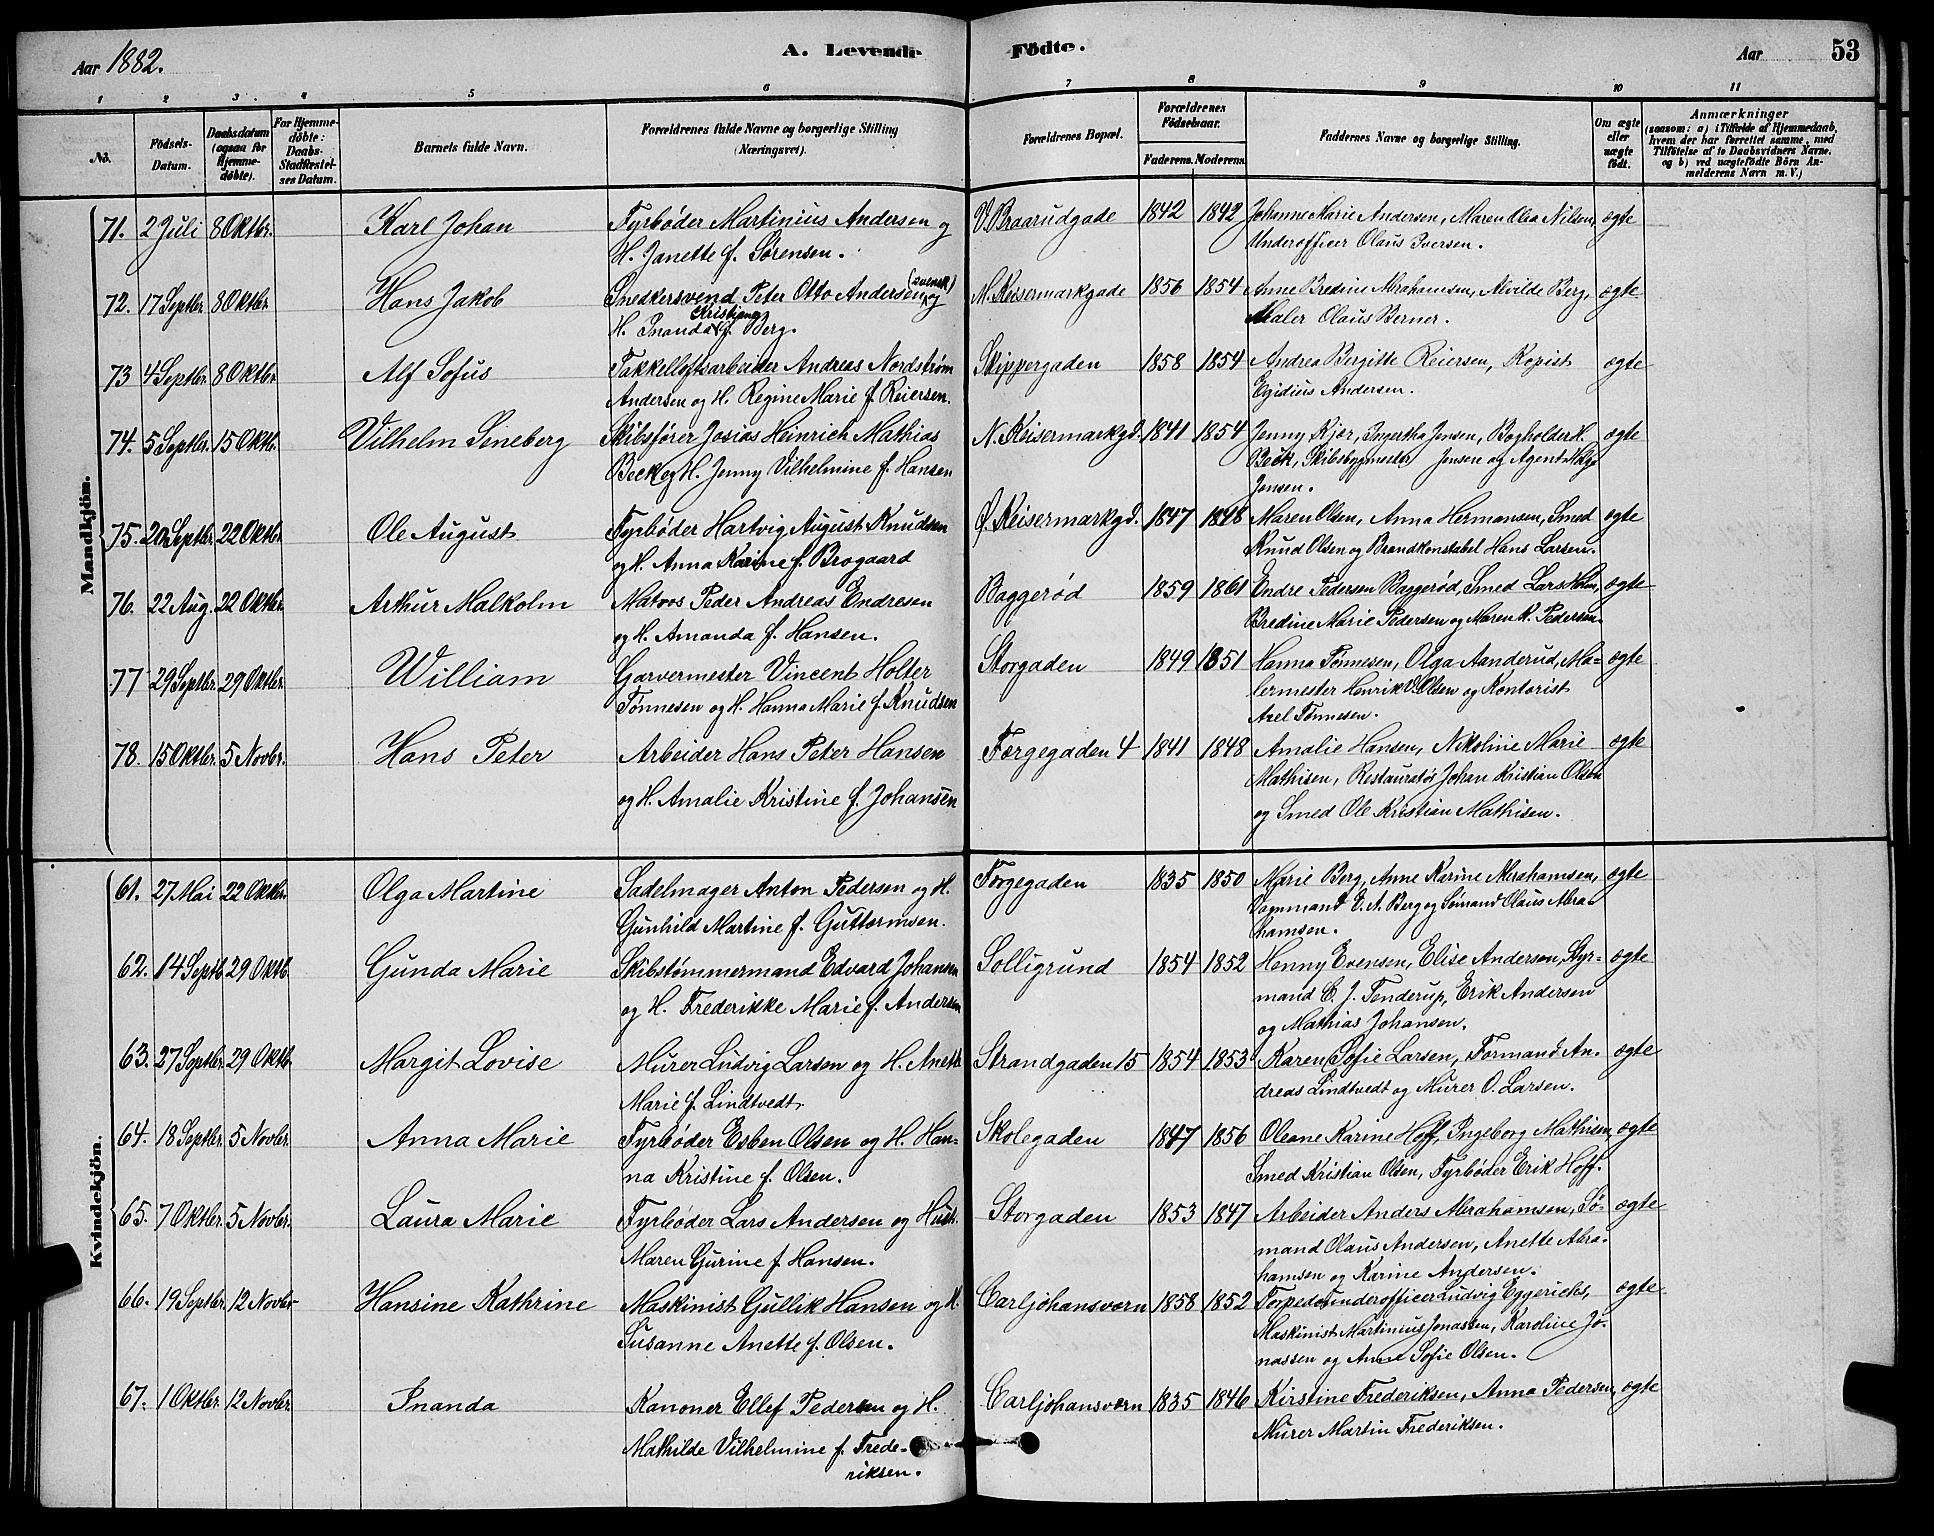 Aar 1882.
A. Levende Födte.
Aar
53
1 2 3 4 5 6 7 8 9 10 11
No.
Födsels-Datum.
Daabsdatum (ogsaa for Hjemme-döbte).
For Hjemme-döbte: Daabs-Stadfæstel-ses Datum.
Barnets fulde Navn.
Forældrenes fulde Navne og borgerlige Stilling (Næringsvei).
Forældrenes Bopæl.
Forældrenes Födselsaar.
Faderens. Moderens.
Faddernes Navne og borgerlige Stilling.
Om ægte eller uægte födt.
Anmærkninger
(saasom: a) i Tilfælde af Hjemmedaab, hvem der har forrettet samme, med Tilföielse af to Daabsvidners Navne, og b) ved uægtefödte Börn An-melderens Navn m. V.)
Mandkjön.
71. 2 Juli 8 Oktbr. Karl Johan Fyrbøder Martinius Andersen og V. Braarudgade 1842 1842 Johanne Marie Andersen, Maren Olea Nilsen, ægte
H. Janette f. Sørensen. Underofficer Olaus Iversen.
72. 17 Septbr. 8 Oktbr. Hans Jakob Snedkersvend Peter Otto Andersen (svensk) og N. Keisermarkgade 1856 1854 Anne Bredine Abrahamsen, Alvilde Berg, ægte
H. Inanda Kristiane f. Berg. Maler Olaus Berner.
73 4 Septbr. 8 Oktbr. Alf Sofus Takkelloftsarbeider Andreas Nordstrøm Skippergaden 1858 1854 Andrea Bergitte Reiersen, Kopist ægte
Andersen og H. Regine Marie f. Reiersen. Egidius Andersen.
74. 5 Septbr. 15 Oktbr. Vilhelm Lineberg Skibsfører Josias Heinrich Mathias N. Keisermarkgd. 1841 1854 Jenny Kjær, Ingertha Jensen, Bogholder H. ægte
Beck og H. Jenny Vilhelmine f. Hansen Beck, Skibsbygmester Jensen og Agent
Jensen.
75. 20 Septbr. 22 Oktbr. Ole August Fyrbøder Hartvig August Knudsen Ø. Keisermarkgd. 1847 1848 Maren Olsen, Anna Hermansen, Smed ægte
og H. Anna Karine f. Brogaard Knud Olsen og Brandkonstabel Hans Larsen.
76. 22 Aug. 22 Oktbr. Arthur Malkolm Matros Peder Andreas Endresen Baggerød 1859 1861 Endre Pedersen Baggerød, Smed Lars Holm, ægte
og H. Amanda f. Hansen. Bredine Marie Pedersen og Maren K. Pedersen.
77 29 Septbr. 29 Oktbr. William Garvermester Vincent Holter Storgaden 1849 1851 Hanna Tønnesen, Olga Aanderud, Ma- ægte
Tønnesen og H. Hanna Marie f. Knudsen lermester Henrik O. Olsen og Kontorist
Axel Tønnesen.
78. 15 Oktbr. 5 Novbr. Hans Peter Arbeider Hans Peter Hansen Færgegaden 4 1841 1848 Amalie Hansen, Nikoline Marie ægte
og H. Amalie Kristine f. Johansen Mathisen, Restauratør Johan Kristian Olsen
og Smed Ole Kristian Mathisen.
Kvindekjön.
61. 27 Mai 22 Oktbr. Olga Martine Sadelmager Anton Pedersen og H. Færgegaden 1835 1850 Marie Berg, Anne Karine Abrahamsen, ægte
Gunhild Martine f. Guttormsen. Vognmand E. A. Berg og Sømand Olaus Abra-
hamsen.
62. 14 Septb. 29 Oktb. Gunda Marie Skibstømmermand Edvard Johansen Solligrund 1854 1852 Henny Evensen, Elise Andersen, Styr- ægte
og H. Frederikke Marie f. Andersen mand C. J. Tenderup, Erik Andersen
og Mathias Johansen.
63. 27 Septbr. 29 Oktb. Margit Lovise Murer Ludvig Larsen og H. Anette Strandgaden 15 1854 1853 Karen Sofie Larsen, Formand An- ægte
Marie f. Lindtvedt. dreas Lindtvedt og Murer O. Larsen.
64. 18 Septbr. 5 Novbr. Anna Marie Fyrbøder Esben Olsen og H. Han- Skolegaden 1847 1856 Oleane Karine Hoff, Ingeborg Mathisen, ægte
na Kristine f. Olsen. Smed Kristian Olsen, Fyrbøder Erik Hoff.
65. 7 Oktbr. 5 Novbr. Laura Marie Fyrbøder Lars Andersen og Hust. Storgaden 1853 1847 Arbeider Anders Abrahamsen, Sø- ægte
Maren Gurine f. Hansen. mand Olaus Andersen, Anette Abra-
hamsen og Karine Andersen.
66. 19 Septbr. 12 Novbr Hansine Kathrine Maskinist Gullik Hansen og H. Carljohansværn 1858 1852 Torpedounderofficer Ludvig Eggerichs, ægte
Susanne Anette f. Olsen. Maskinist Martinius Jonassen, Karoline Jo-
nassen og Anne Sofie Olsen.
67. 1 Oktbr. 12 Novbr Inanda Kanoner Ellef Pedersen og H. Carljohansværn 1835 1846 Kirstine Frederiksen, Anna Pedersen, ægte
Mathilde Vilhelmine f. Frede- Murer Martin Frederiksen.
riksen.